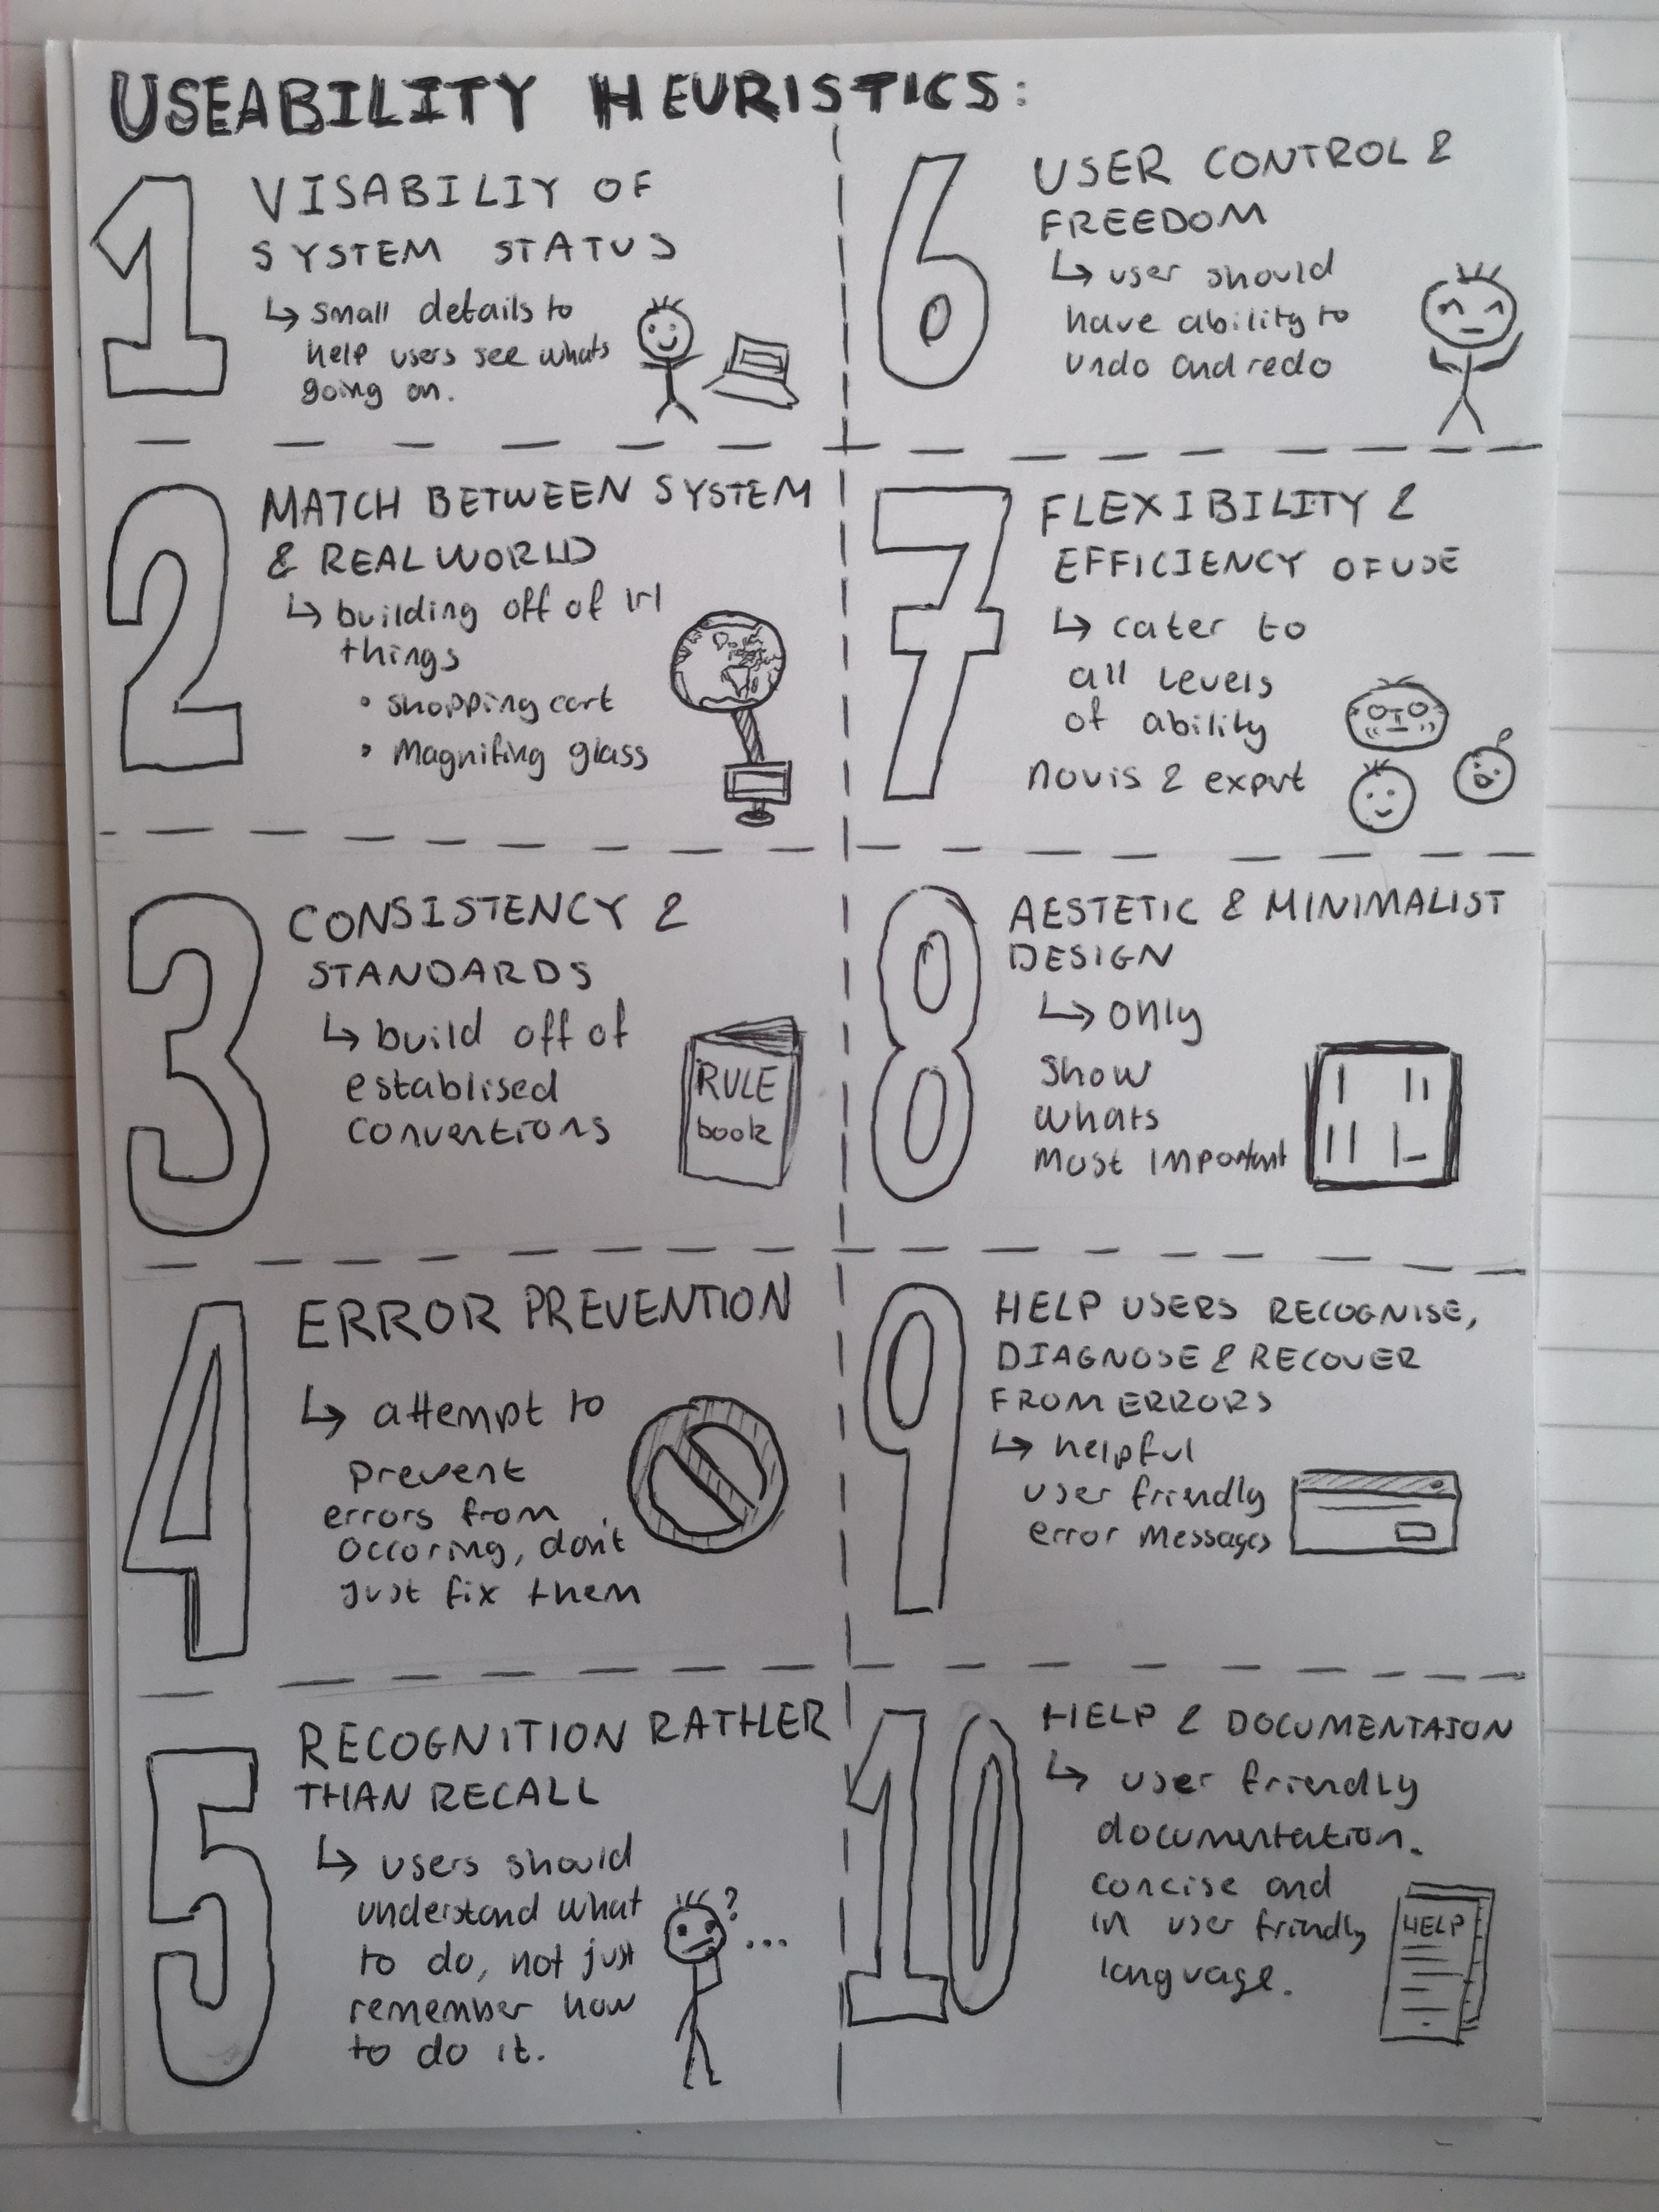 USEABILITY HEURISTICS:
1
VISABILIY OF
SYSTEM STATUS
↳ small details to
help users see whats
going on.
2
MATCH BETWEEN SYSTEM
& REAL WORLD
↳ building off of irl
things
• shopping cart
• Magnifing glass
3
CONSISTENCY &
STANDARDS
↳ build off of
establised
conventions
RULE
book
4
ERROR PREVENTION
↳ attempt to
prevent
errors from
occoring, don't
just fix them
5
RECOGNITION RATHER
THAN RECALL
↳ users should
understand what
to do, not just
remember how
to do it.
? ...
6
USER CONTROL &
FREEDOM
↳ user should
have ability to
undo and redo
7
FLEXIBILITY &
EFFICIENCY OF USE
↳ cater to
all levels
of ability
novis & exprt
8
AESTETIC & MINIMALIST
DESIGN
↳ only
show
whats
most important
9
HELP USERS RECOGNISE,
DIAGNOSE & RECOVER
FROM ERRORS
↳ helpful
user friendly
error messages
10
HELP & DOCUMENTAION
↳ user friendly
documentation.
concise and
in user friendly
language.
HELP